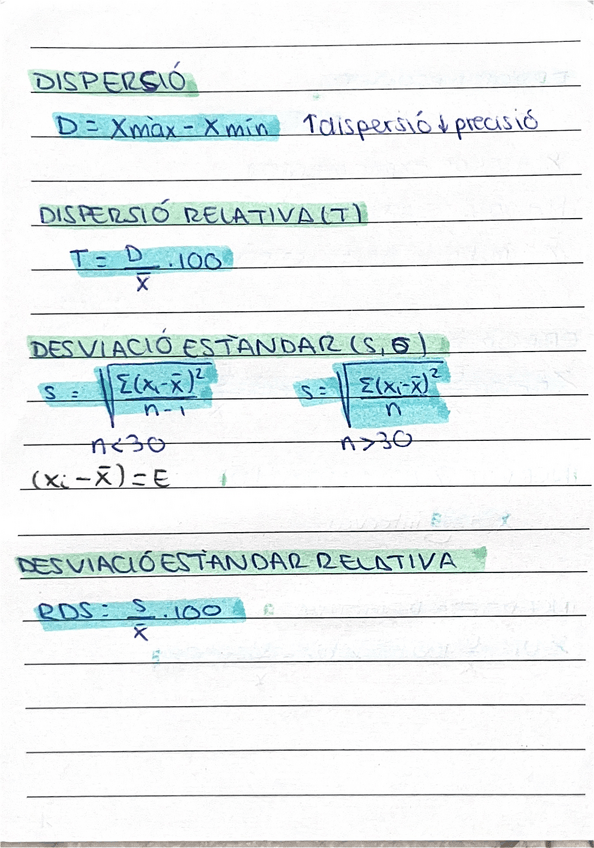 DISPERSIÓ
D = Xmàx - X mín ↑dispersió ↓ precisió
DISPERSIÓ RELATIVA (T)
T = D/x̄ · 100
DESVIACIÓ ESTÀNDAR (S, σ)
s = √(Σ(xi-x̄)²/(n-1)) s = √(Σ(xi-x̄)²/n)
n<30 n>30
(xi - x̄) = E
DESVIACIÓ ESTÀNDAR RELATIVA
RDS = s/x̄ · 100